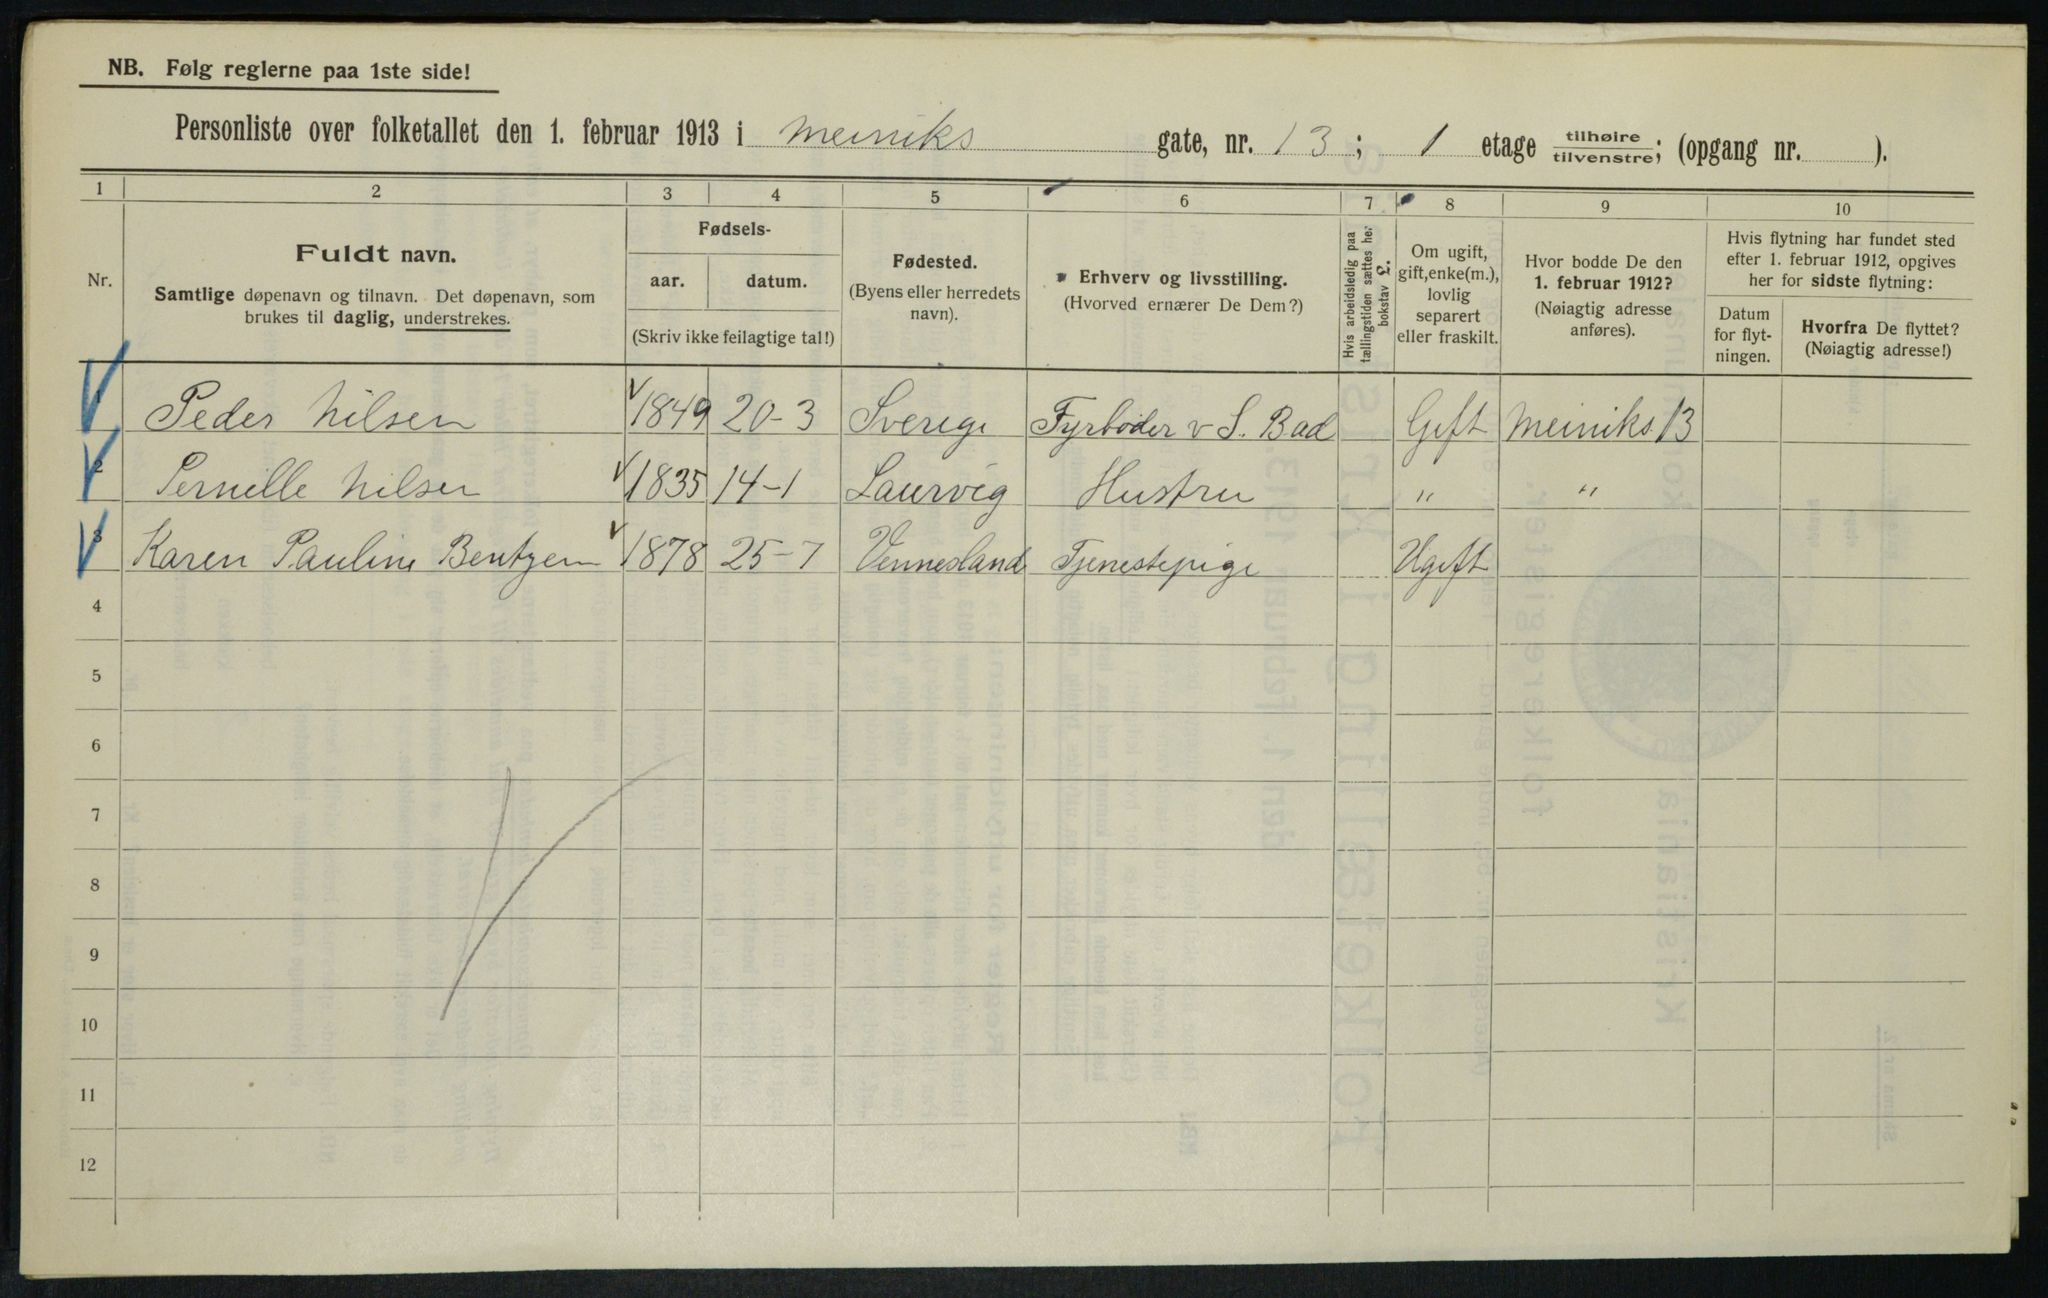 NB. Følg reglerne paa 1ste side!
Personliste over folketallet den 1. februar 1913 i Meiniks gate, nr. 13; 1 etage tilhøire/tilvenstre; (opgang nr. ).
1 2 3 4 5 6 7 8 9 10
Nr.
Fuldt navn.
Samtlige døpenavn og tilnavn. Det døpenavn, som
brukes til daglig, understrekes.
Fødsels-
aar. datum.
(Skriv ikke feilagtige tal!)
Fødested.
(Byens eller herredets
navn).
Erhverv og livsstilling.
(Hvorved ernærer De Dem?)
Hvis arbeidsledig paa
tællingstiden sættes her
bokstav L.
Om ugift,
gift, enke(m.),
lovlig
separert
eller fraskilt.
Hvor bodde De den
1. februar 1912?
(Nøiagtig adresse
anføres).
Hvis flytning har fundet sted
efter 1. februar 1912, opgives
her for sidste flytning:
Datum
for flyt-
ningen.
Hvorfra De flyttet?
(Nøiagtig adresse!)
Peder Nilsen 1849 20-3 Sverige Fyrbøder v S. Bad Gift Meiniks 13
2 Pernelle Nilsen 1835 14-1 Laurvig Hustru " "
3 Karen Pauline Bentzen 1878 25-7 Vennesland Tjenestepige Ugift
4
5
6
7
8
9
10
11
12